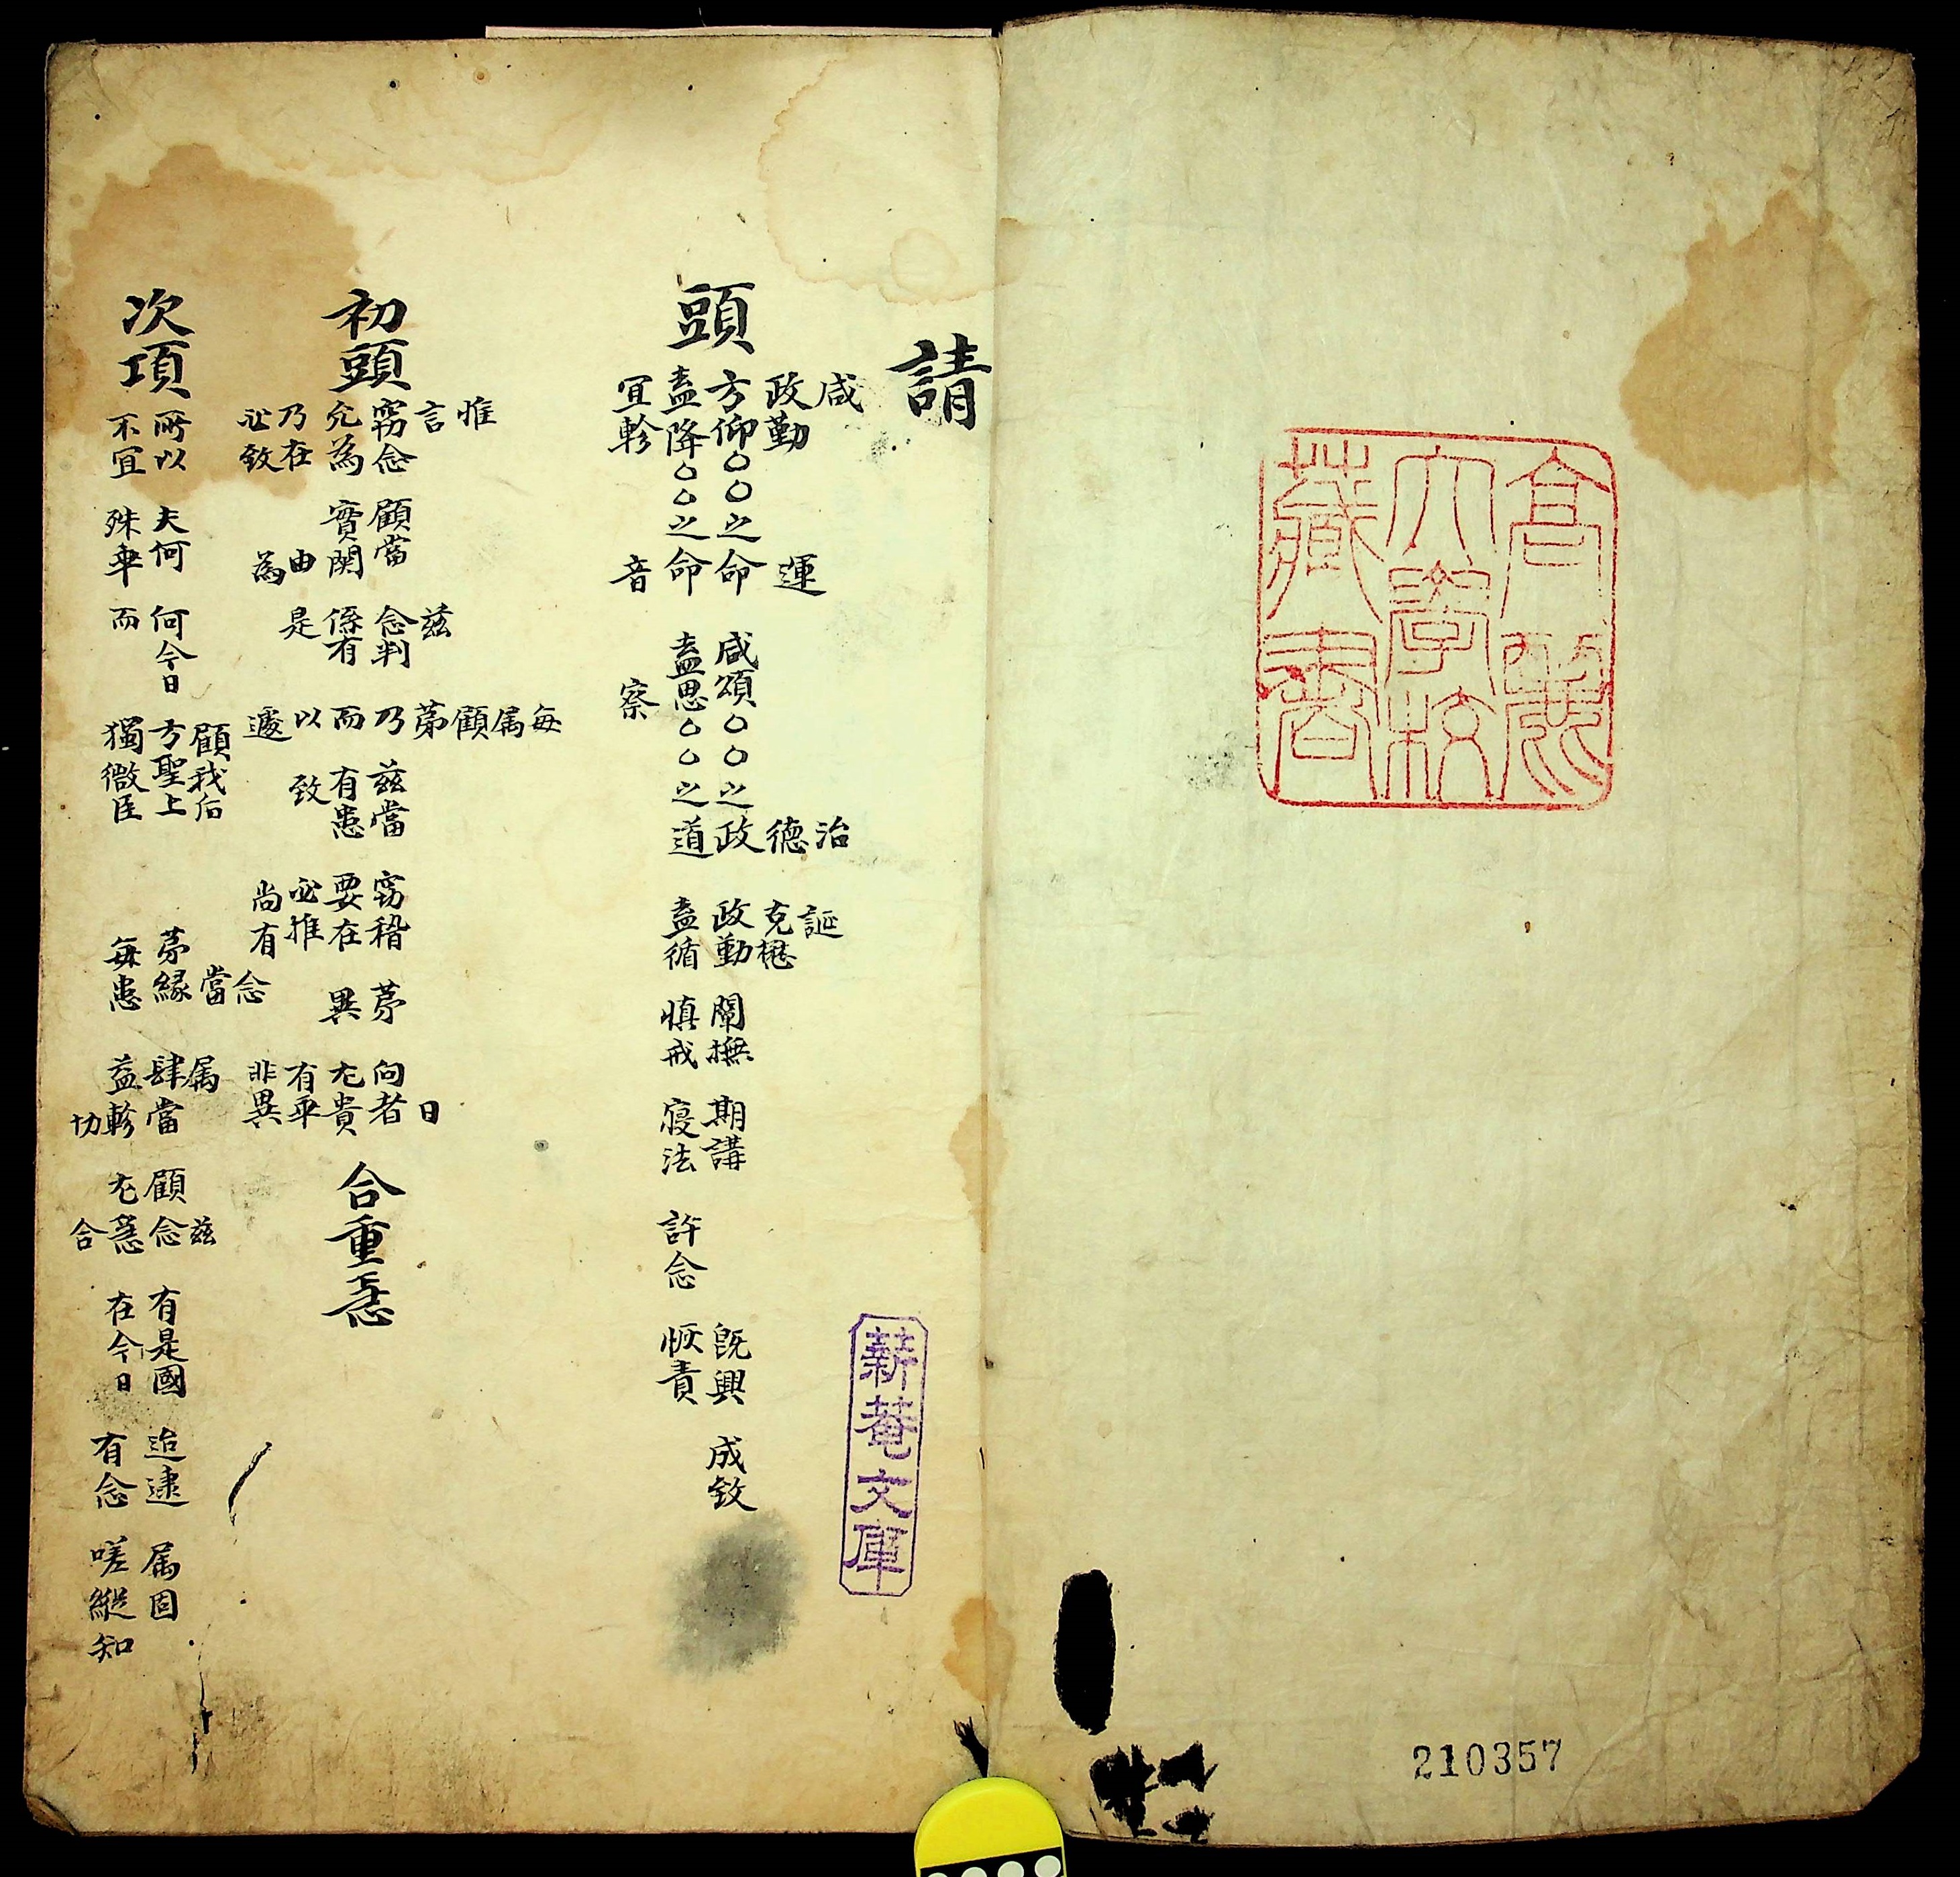 高麗
大學校
藏書
210357
請
頭
咸 治 誕
政勤 運 德 克懋
方仰○○之命 咸頌○○之政 政勤 闡撫 期講 既興 成致
盍降○○之命 盍思○○之道 盍循 慎戒 寢法 許念 恢責
宜軫 音 察
薪菴文庫
初頭
惟 每
言 玆 茅顧属 日
窃念 顧當 念判 乃 玆當 窃稽 茅 向者
允為 實関 係有 而 有患 要在 異 尤貴
乃在 由 是 以 致 必推 有乎
必致 為 遽 尚有 非異
合重患
次項
顧我后 當念 属 玆
所以 夫何 何今日 方聖上 茅緣 肆當 顧念 有是國 迨逮 属固
不宜 殊乖 而 獨微臣 每患 益軫 尤患 在今日 有念 嗟縱知
切 合